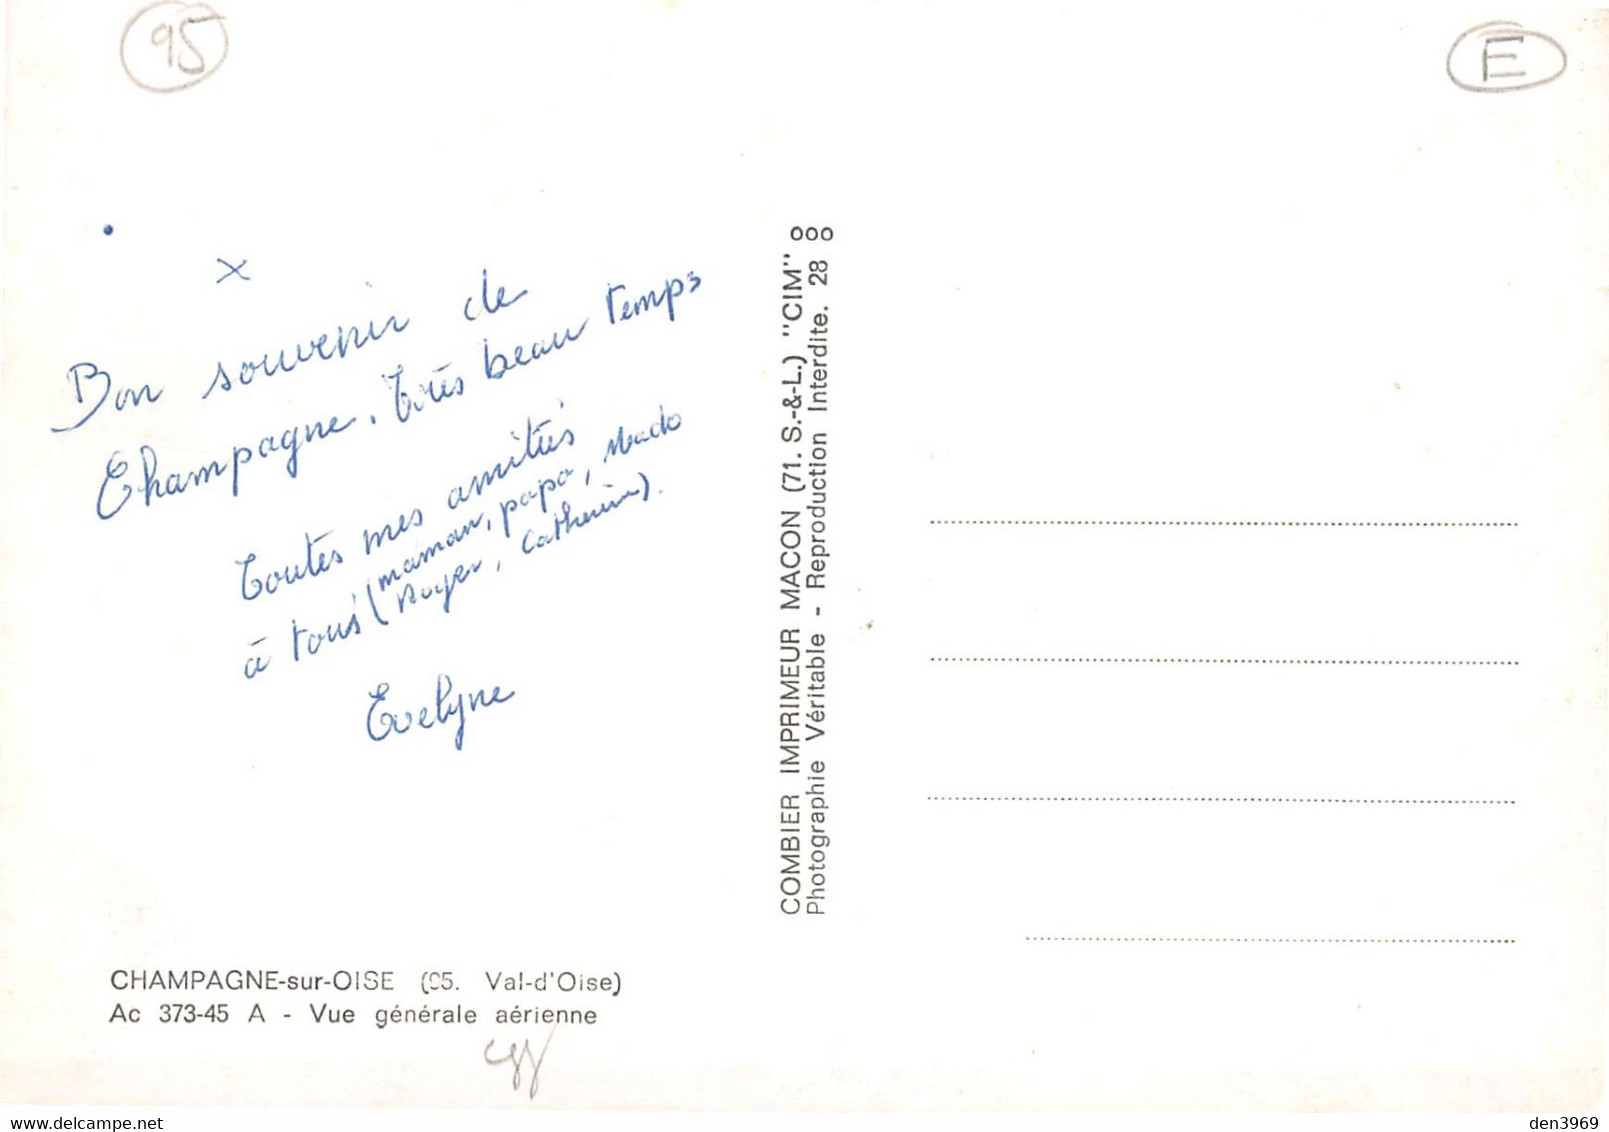 95
E
x
Bon souvenir de
Champagne. Très beau temps
Toutes mes amitiés
à tous (maman, papa, Mado
Roger, Catherine).
Evelyne
CHAMPAGNE-sur-OISE (95. Val-d'Oise)
Ac 373-45 A - Vue générale aérienne
COMBIER IMPRIMEUR MACON (71. S.-&-L.) "CIM"
Photographie Véritable - Reproduction Interdite. 28
delcampe.net
den3969